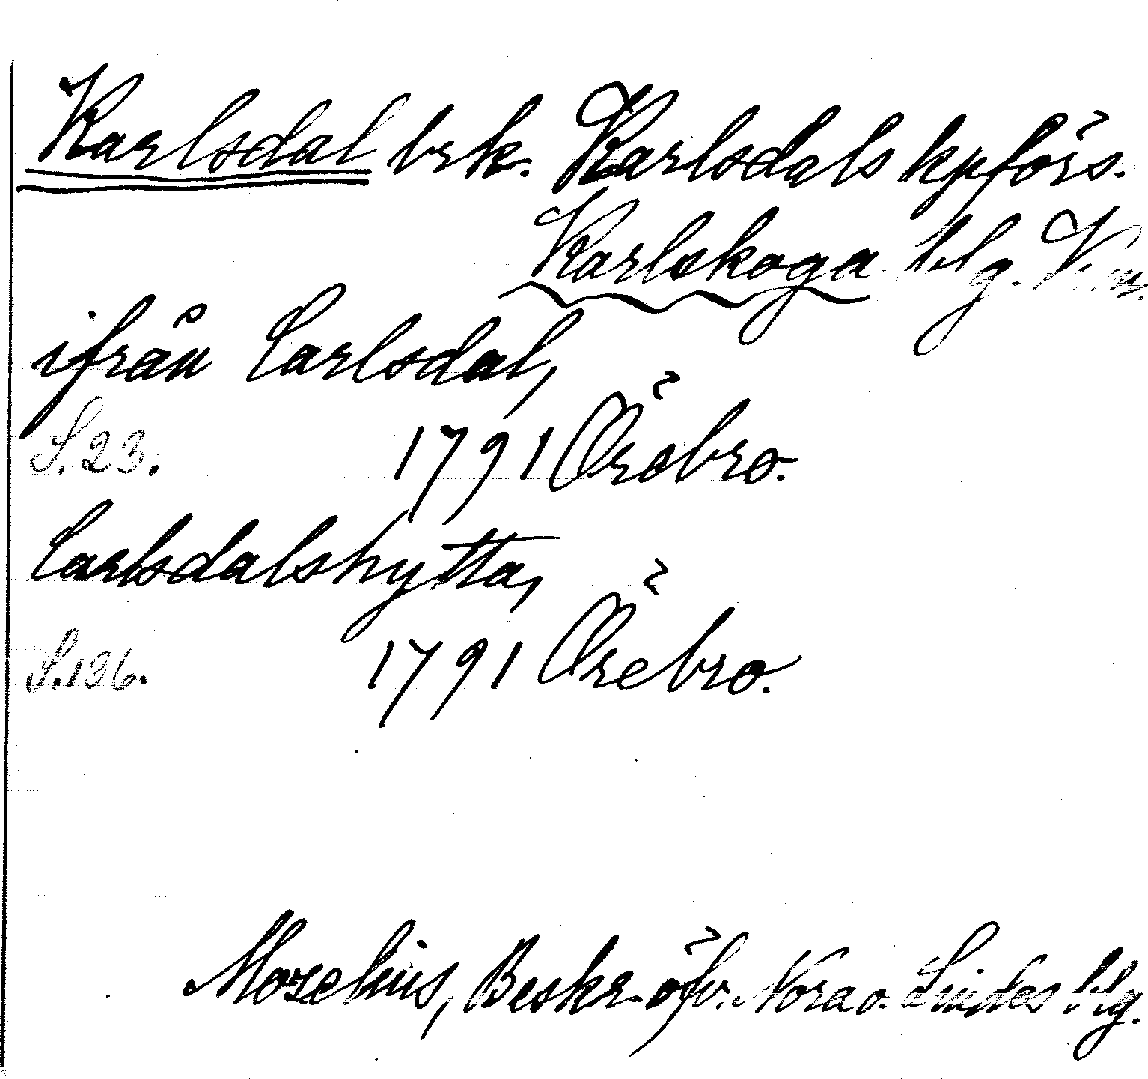 Karlsdal brk. Karlsdals kpförs.
Karlskoga blg. Vrm.
ifrån Carlsdal,
S. 23. 1791 Örebro.
Carlsdalshytta,
S. 136. 1791 Örebro.
Mozelius, Beskr. öfv. Nora o. Lindes blg.